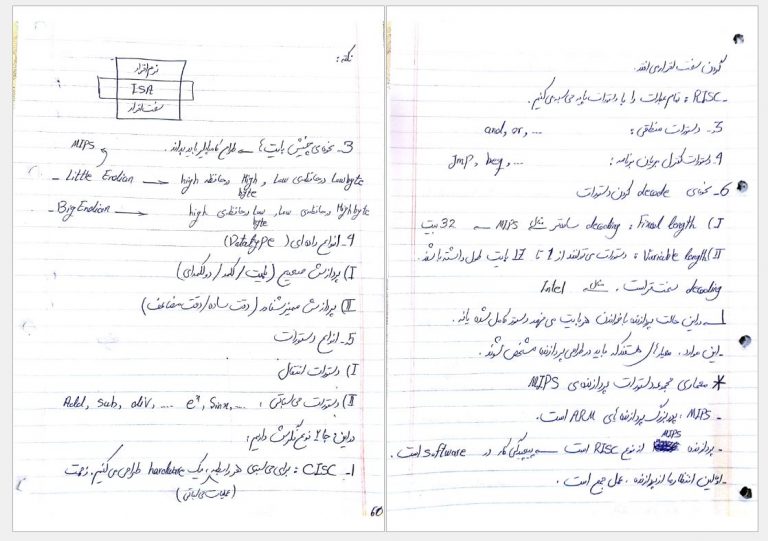 نکته:
نرم‌افزار
ISA
سخت‌افزار
3- نحوه‌ی چینش بایت‌ها → طراح کامپایلر باید بداند.
MIPS
- Little Endian → high درحافظه High byte, Low درحافظه‌ی Low byte
- Big Endian → high درحافظه‌ی Low byte, Low درحافظه‌ی High byte
4- انواع داده‌ای (Data type)
I) پردازش صحیح (بایت/کلمه/دوکلمه‌ای)
II) پردازش ممیز شناور (دقت ساده/دقت مضاعف)
5- انواع دستورات
I) دستورات انتقال
II) دستورات محاسباتی: Add, sub, div, ... eˣ, Sinx, ...
در این‌جا 2 نوع نگرش داریم:
1- CISC: برای هر رابطه، یک hardware طراحی می‌کنیم. زحمت
(عملیات محاسباتی)
60
گردن سخت‌افزار می‌افتد.
- RISC: تمام عبارات را با دستورات پایه محاسبه می‌کنیم.
3- دستورات منطقی: and, or, ...
4- دستورات کنترل جریان برنامه: Jmp, beq, ...
6- نحوه‌ی decode کردن دستورات
I) Fixed length: decoding ساده‌تر مثل MIPS → 32 بیت
II) Variable length: دستورات می‌توانند از 1 تا 17 بایت طول داشته باشند.
decoding سخت‌تر است. مثل Intel
در این حالت پردازنده با خواندن هر بایت می‌فهمد دستور کامل شده یا نه.
- این موارد، معیارهایی هستند که باید در طراحی پردازنده مشخص شوند.
* معماری مجموعه دستورات پردازنده‌ی MIPS
- MIPS: پدربزرگ پردازنده‌های ARM است.
- پردازنده MIPS از نوع RISC است → پیچیدگی کار در software است.
- اولین انتظار ما از پردازنده، عمل جمع است.